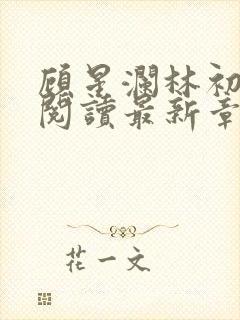 顾星澜林初
閱讀最新章
花一文